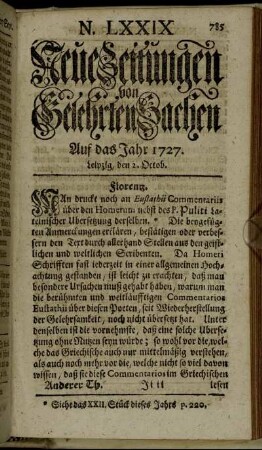 N. LXXIX
785
Neue Zeitungen
von
Gelehrten Sachen
Auf das Jahr 1727.
Leipzig, den 2. Octob.
Florentz.
MAn druckt noch an Eustathii Commentariis
über den Homerum nebst des P. Puliti La-
teinischer Ubersetzung derselben. * Die beygefüg-
ten Anmerckungen erklären, bestätigen oder verbes-
sern den Text durch allerhand Stellen aus den geist-
lichen und weltlichen Scribenten. Da Homeri
Schrifften fast jederzeit in einer allgemeinen Hoch-
achtung gestanden, ist leicht zu erachten, daß man
besondere Ursachen muß gehabt haben, warum man
die berühmten und weitläufftigen Commentarios
Eustathii über diesen Poeten, seit Wiederherstellung
der Gelehrsamkeit, noch nicht übersetzt hat. Unter
denselben ist die vornehmste, daß eine solche Uberse-
tzung ohne Nutzen seyn würde; so wohl vor die, wel-
che das Griechische auch nur mittelmäßig verstehen,
als auch noch mehr vor die, welche nicht so viel davon
wissen, daß sie diese Commentarios im Griechischen
Anderer Th. Iiii lesen
* Siehe das XXII. Stück dieses Jahrs p. 220.